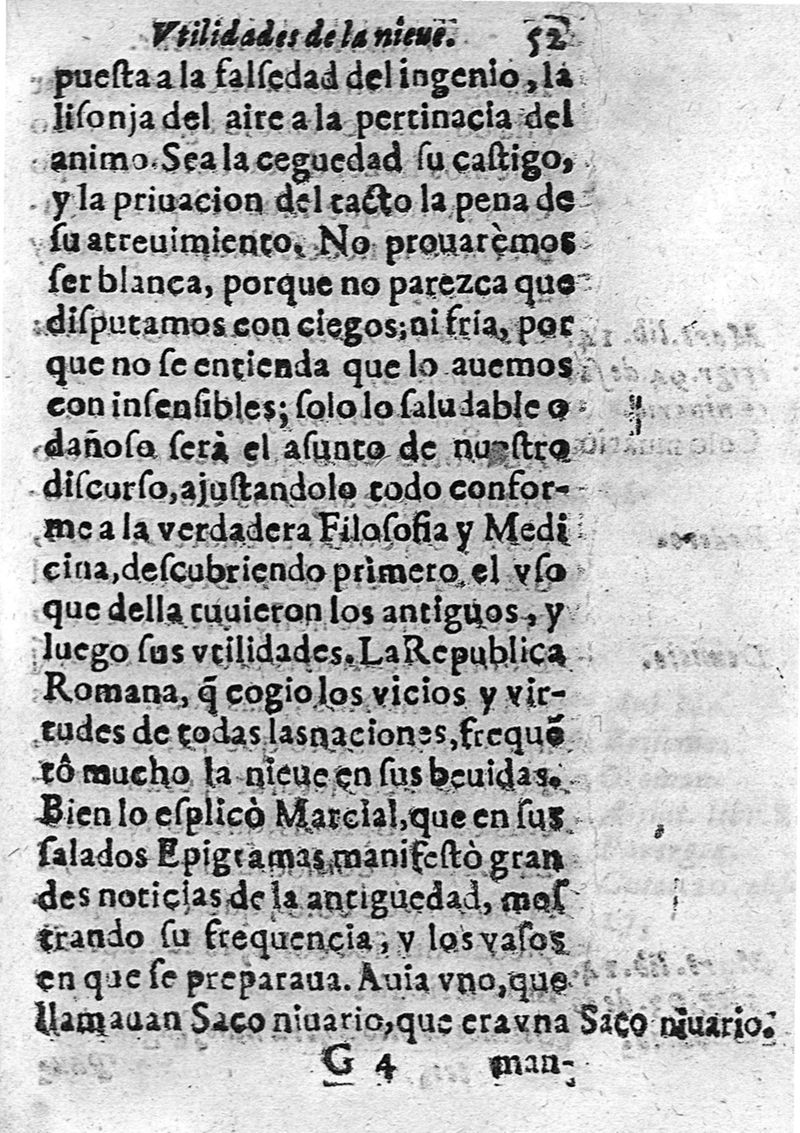 Vtilidades de la nieue. 52
puesta a la falsedad del ingenio, la
lisonja del aire a la pertinacia del
animo. Sea la ceguedad su castigo,
y la priuacion del tacto la pena de
su atreuimiento. No prouarèmos
ser blanca, porque no parezca que
disputamos con ciegos; ni fria, por
que no se entienda que lo auemos
con insensibles; solo lo saludable o
dañoso serà el asunto de nuestro
discurso, ajustandolo todo confor-
me a la verdadera Filosofia y Medi
cina, descubriendo primero el vso
que della tuuieron los antiguos, y
luego sus vtilidades. La Republica
Romana, q̃ cogio los vicios y vir-
tudes de todas las naciones, frequẽ
tô mucho la nieue en sus beuidas.
Bien lo esplicò Marcial, que en sus
salados Epigramas manifestò gran
des noticias de la antiguedad, mos
trando su frequencia, y los vasos
en que se preparaua. Auia vno, que
llamauan Saco niuario, que era vna Saco niuario.
G 4 man-